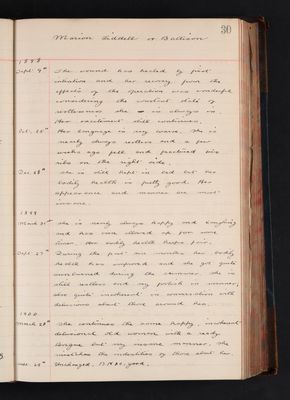 30
Marion Liddell or Battison
1898
Sept 9th The wound has healed by first
intention and her recovery from the
effects of the operation was wonderful
considering the constant state of
restlessness she is always in.
Her excitement still continues.
Oct. Her language is very coarse. She is
nearly always restless and a few
weeks ago fell and fractured two
ribs on the right side.
Dec 28th She is still kept in bed but her
bodily health is fairly good. Her
appearance and manner are most
insane.
1899
March 31st She is nearly always happy and laughing
and has now allowed up for some
time. Her bodily health keeps fair.
Sept 27th During the past six months her bodily
health has improved and she got quite
sunburned during the summer. She is
still restless and very foolish in manner,
also quite incoherent in conversation with
delusions about those around her.
1900
March 28th She continues the same happy, incoherent
delusional old woman with a ready
tongue but very insane manner. She
mistakes the identities of those about her.
Unchanged. B.H. is good.